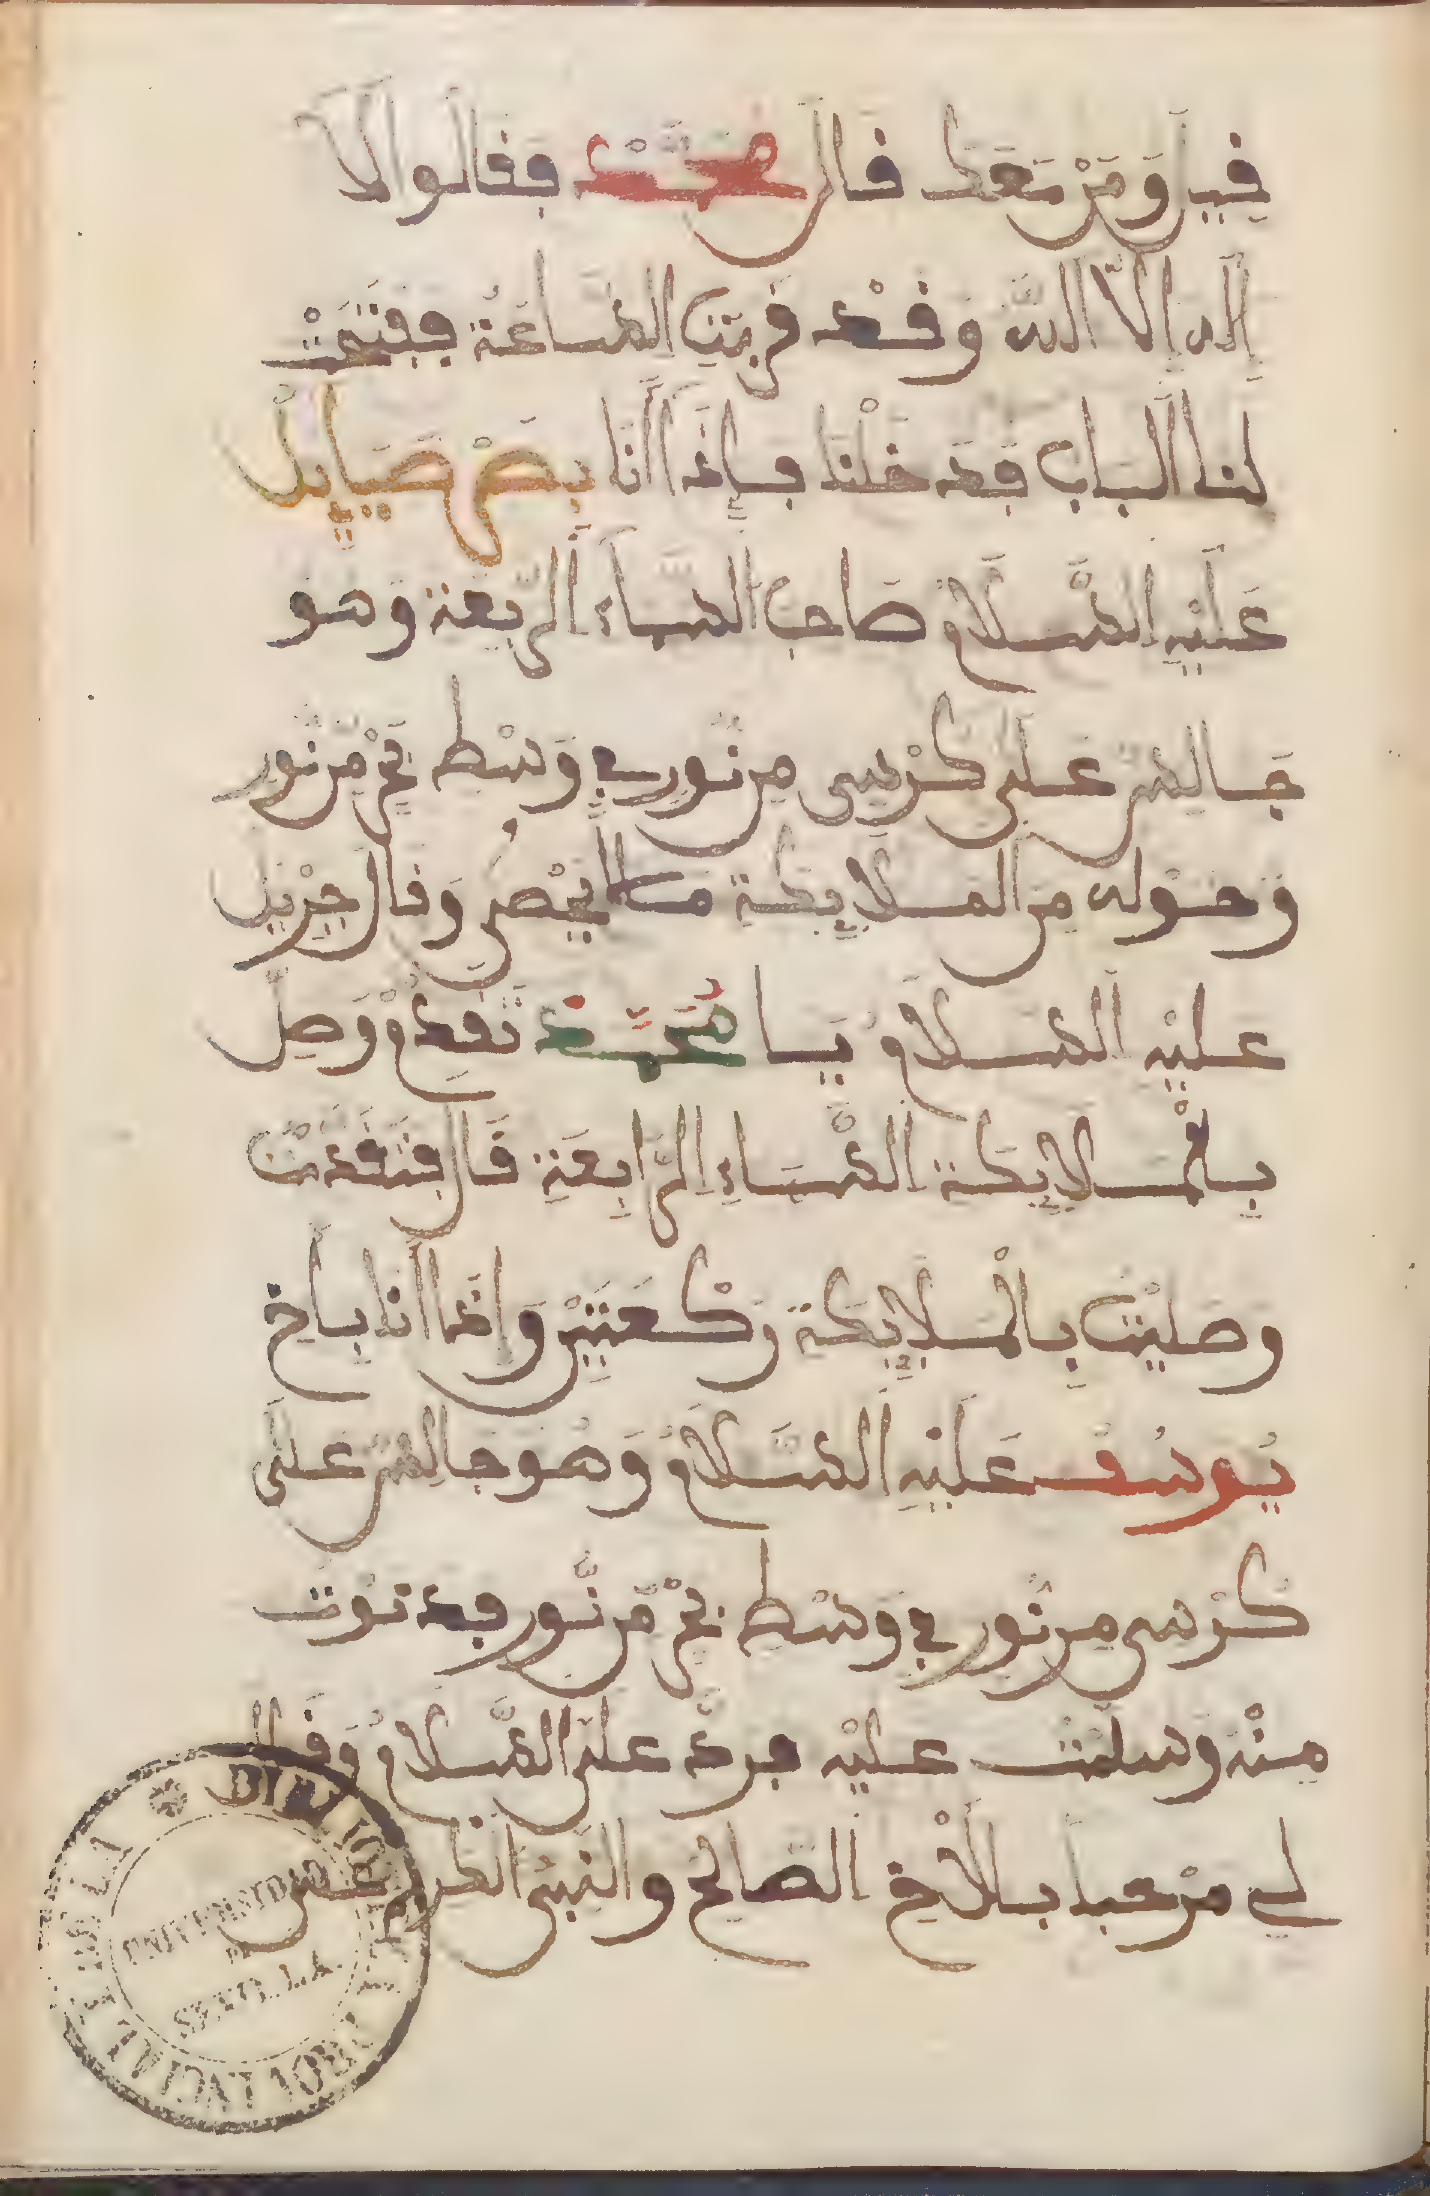 فيل ومن معك قال محمد ففالوا لا
اله الا الله وقد قربت الساعة ففتحت
لنا الباب فدخلنا فإذا أنا بصرصيايل
عليه السلام صاحب السماء الربعة وهو
جالس على كرسي من نور في وسط بحر من نور
وحوله من الملايكة ما لا يحصى وقال جبريل
عليه السلام يا محمد تقدم وصل
بالملايكة السماء الرابعة قال فتقدمت
وصليت بالملايكة ركعتين وإذا أنا بأخ
يوسف عليه السلام وهو جالس على
كرسي من نور في وسط بحر من نور فدنوت
منه وسلمت عليه فرد علي السلام وقال
لي مرحبا بالأخ الصالح والنبي الكريم
BIBLIOTECA PROVINCIAL
UNIVERSIDAD
DE
SEVILLA